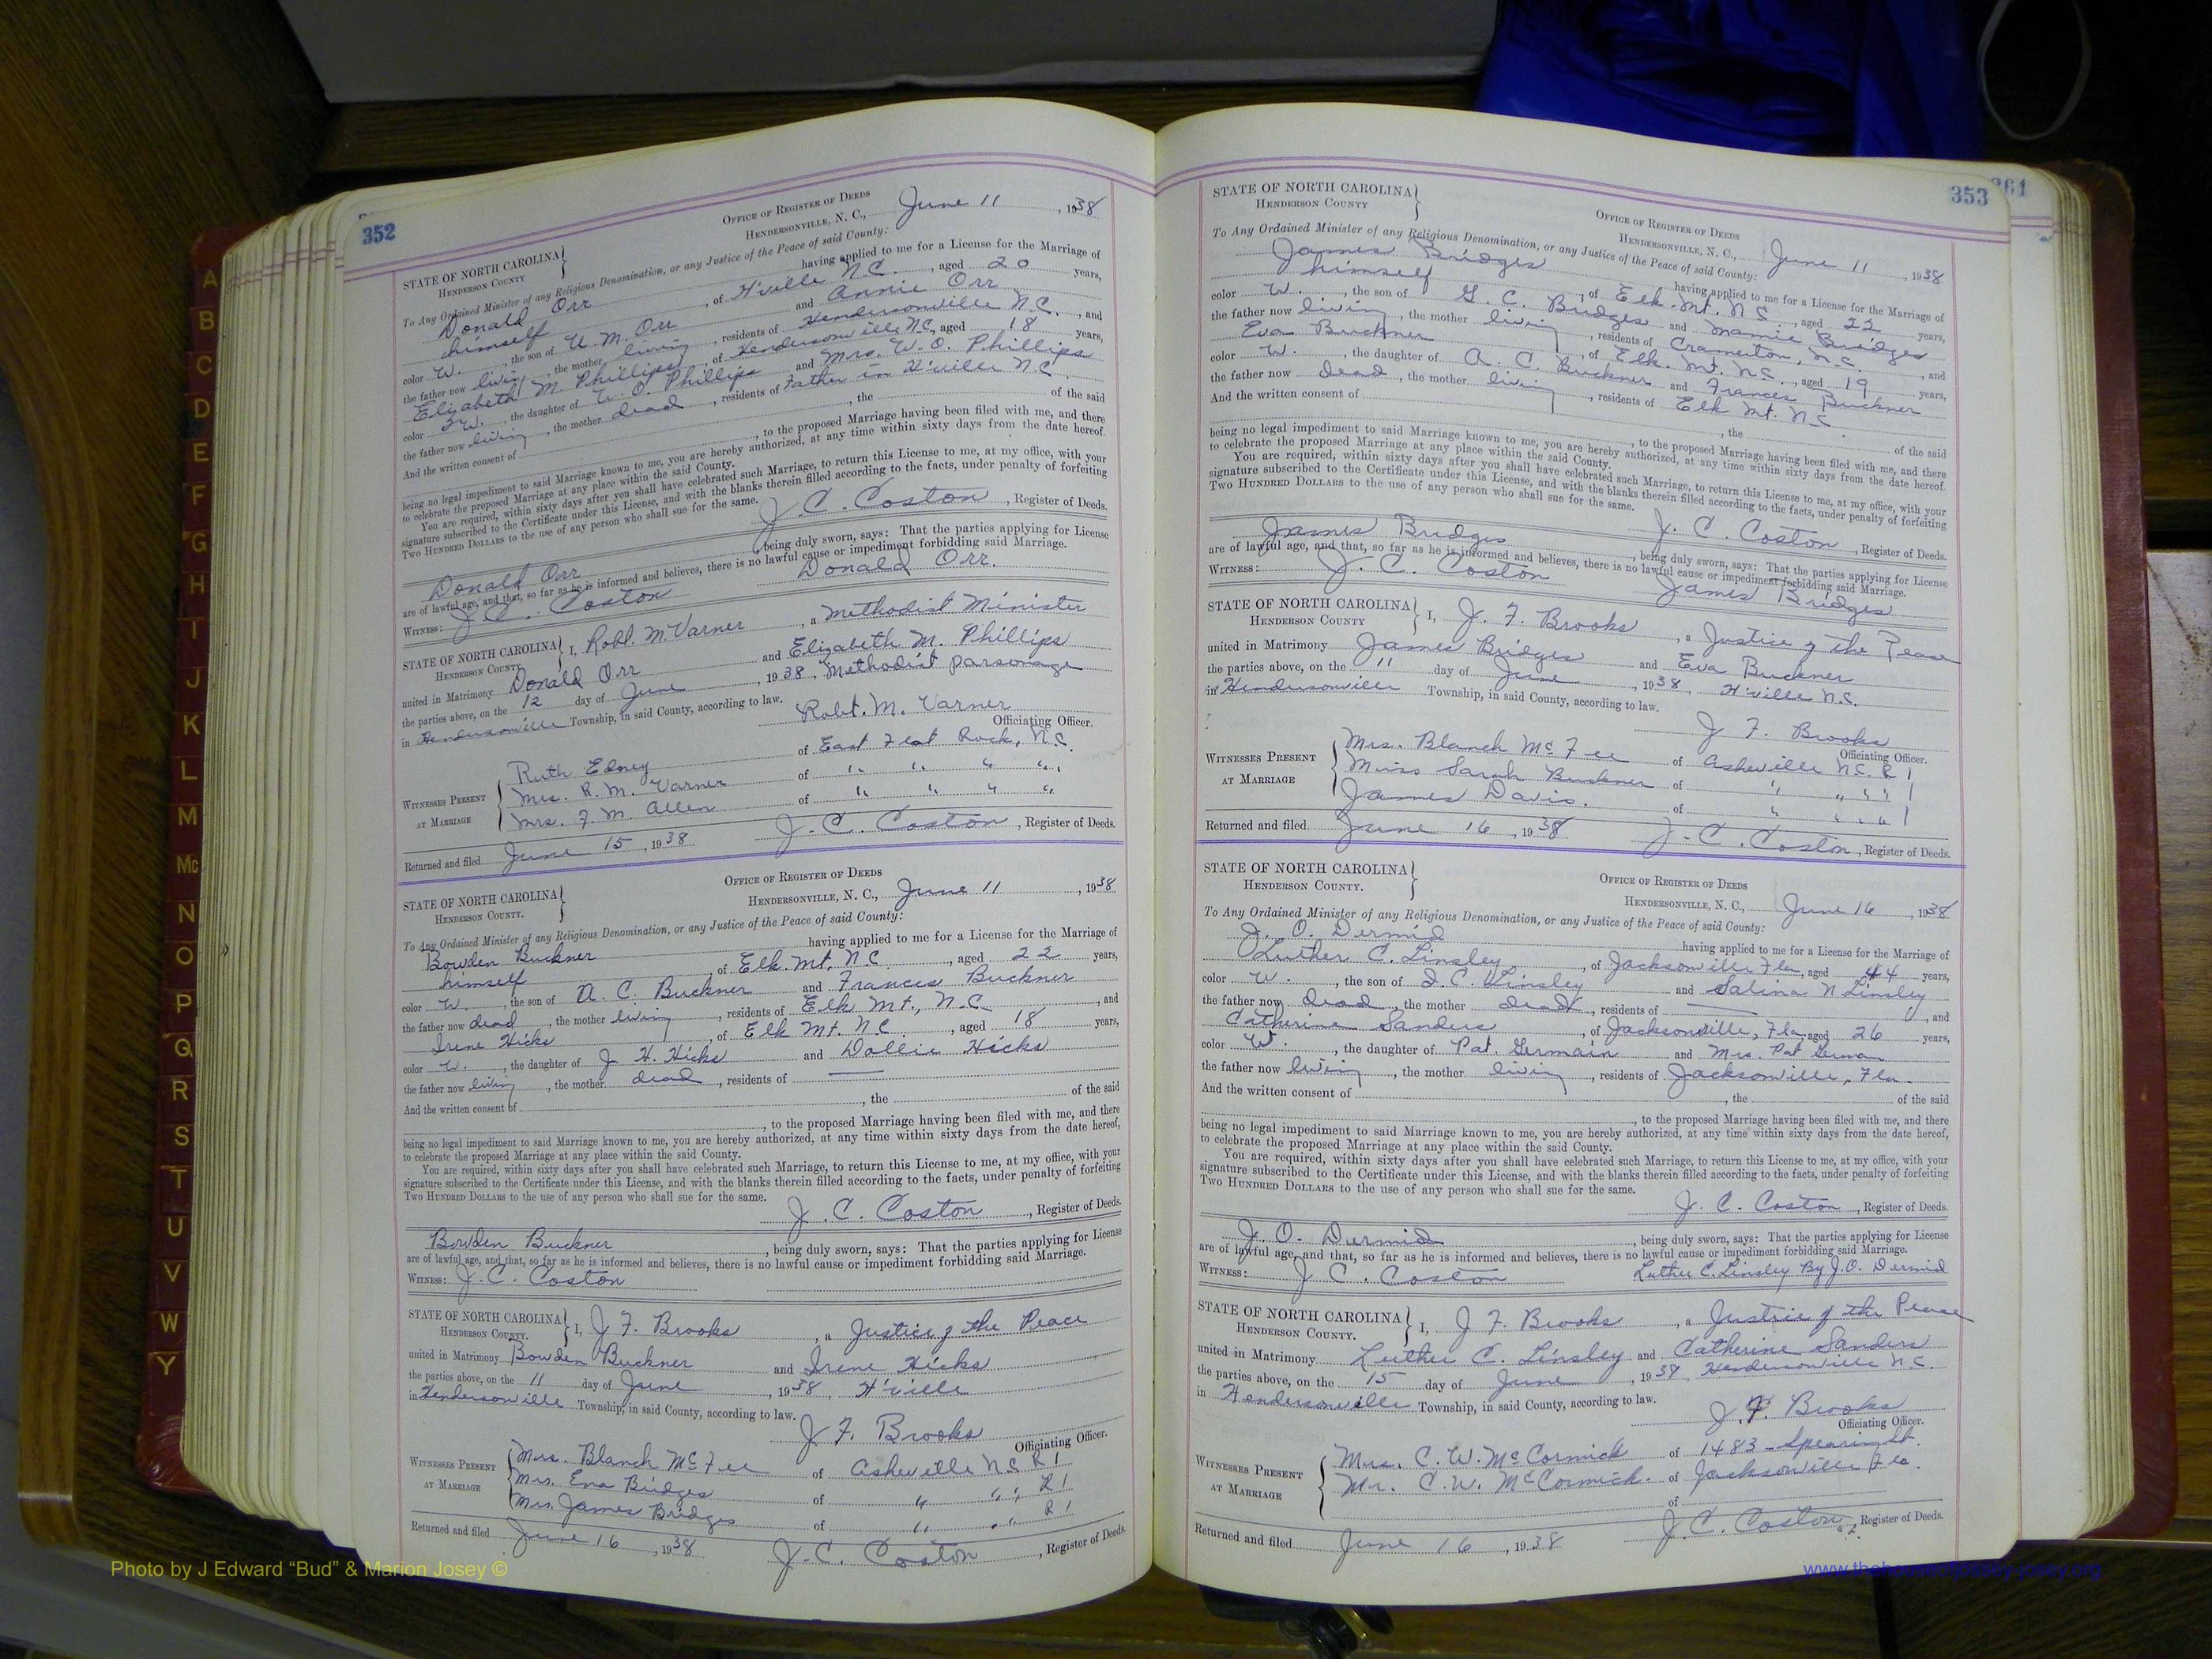 A
B
C
D
E
F
G
H
I
J
K
L
M
Mc
N
O
P
Q
R
S
T
U
V
W
Y
352
STATE OF NORTH CAROLINA
HENDERSON COUNTY
OFFICE OF REGISTER OF DEEDS
HENDERSONVILLE, N. C., June 11, 1938
To Any Ordained Minister of any Religious Denomination, or any Justice of the Peace of said County:
Donald Orr having applied to me for a License for the Marriage of
himself, of H'ville N.C., aged 20 years,
color W., the son of U. M. Orr and Annie Orr
the father now living, the mother living, residents of Hendersonville N.C., and
Elizabeth M. Phillips, of Hendersonville N.C., aged 18 years,
color W., the daughter of W. O. Phillips and Mrs. W. O. Phillips
the father now living, the mother dead, residents of Father in H'ville N.C.
And the written consent of , the of the said
, to the proposed Marriage having been filed with me, and there
being no legal impediment to said Marriage known to me, you are hereby authorized, at any time within sixty days from the date hereof,
to celebrate the proposed Marriage at any place within the said County.
You are required, within sixty days after you shall have celebrated such Marriage, to return this License to me, at my office, with your
signature subscribed to the Certificate under this License, and with the blanks therein filled according to the facts, under penalty of forfeiting
TWO HUNDRED DOLLARS to the use of any person who shall sue for the same.
J. C. Coston, Register of Deeds.
Donald Orr, being duly sworn, says: That the parties applying for License
are of lawful age, and that, so far as he is informed and believes, there is no lawful cause or impediment forbidding said Marriage.
WITNESS: J. C. Coston Donald Orr.
STATE OF NORTH CAROLINA
HENDERSON COUNTY
I, Robt. M Varner, a Methodist Minister
united in Matrimony Donald Orr and Elizabeth M. Phillips
the parties above, on the 12 day of June, 1938, Methodist parsonage
in Hendersonville Township, in said County, according to law.
Robt. M. Varner
Officiating Officer.
WITNESSES PRESENT AT MARRIAGE
Ruth Edney of East Flat Rock, N.C.
Mrs. R. M. Varner of " " " "
Mrs. F. M. Allen of " " " "
Returned and filed June 15, 1938 J. C. Coston, Register of Deeds.
STATE OF NORTH CAROLINA
HENDERSON COUNTY.
OFFICE OF REGISTER OF DEEDS
HENDERSONVILLE, N. C., June 11, 1938
To Any Ordained Minister of any Religious Denomination, or any Justice of the Peace of said County:
Bowden Buckner having applied to me for a License for the Marriage of
himself, of Elk Mt, N C, aged 22 years,
color W, the son of A. C. Buckner and Frances Buckner
the father now dead, the mother living, residents of Elk Mt., N.C., and
Irene Hicks, of Elk Mt. N C, aged 18 years,
color W., the daughter of J. H. Hicks and Dollie Hicks
the father now living, the mother dead, residents of —
And the written consent of , the of the said
, to the proposed Marriage having been filed with me, and there
being no legal impediment to said Marriage known to me, you are hereby authorized, at any time within sixty days from the date hereof,
to celebrate the proposed Marriage at any place within the said County.
You are required, within sixty days after you shall have celebrated such Marriage, to return this License to me, at my office, with your
signature subscribed to the Certificate under this License, and with the blanks therein filled according to the facts, under penalty of forfeiting
TWO HUNDRED DOLLARS to the use of any person who shall sue for the same.
J. C. Coston, Register of Deeds.
Bowden Buckner, being duly sworn, says: That the parties applying for License
are of lawful age, and that, so far as he is informed and believes, there is no lawful cause or impediment forbidding said Marriage.
WITNESS: J. C. Coston
STATE OF NORTH CAROLINA
HENDERSON COUNTY.
I, J F. Brooks, a Justice of the Peace
united in Matrimony Bowden Buckner and Irene Hicks
the parties above, on the 11 day of June, 1938, H'ville
in Hendersonville Township, in said County, according to law.
J F. Brooks
Officiating Officer.
WITNESSES PRESENT AT MARRIAGE
Mrs. Blanch McFee of Asheville N C R 1
Mrs. Eva Bridges of " " " R 1
Mrs. James Bridges of " " " R 1
Returned and filed June 16, 1938 J. C. Coston, Register of Deeds.
353
361
STATE OF NORTH CAROLINA
HENDERSON COUNTY
OFFICE OF REGISTER OF DEEDS
HENDERSONVILLE, N. C., June 11, 1938
To Any Ordained Minister of any Religious Denomination, or any Justice of the Peace of said County:
James Bridges having applied to me for a License for the Marriage of
himself, of Elk. Mt. N C, aged 22 years,
color W., the son of G. C. Bridges and Mamie Bridges
the father now living, the mother living, residents of Cramerton, N.C., and
Eva Buckner, of Elk. Mt. N.C., aged 19 years,
color W., the daughter of A. C. Buckner and Frances Buckner
the father now Dead, the mother living, residents of Elk Mt. N C
And the written consent of , the of the said
, to the proposed Marriage having been filed with me, and there
being no legal impediment to said Marriage known to me, you are hereby authorized, at any time within sixty days from the date hereof,
to celebrate the proposed Marriage at any place within the said County.
You are required, within sixty days after you shall have celebrated such Marriage, to return this License to me, at my office, with your
signature subscribed to the Certificate under this License, and with the blanks therein filled according to the facts, under penalty of forfeiting
TWO HUNDRED DOLLARS to the use of any person who shall sue for the same.
J. C. Coston, Register of Deeds.
James Bridges, being duly sworn, says: That the parties applying for License
are of lawful age, and that, so far as he is informed and believes, there is no lawful cause or impediment forbidding said Marriage.
WITNESS: J. C. Coston James Bridges
STATE OF NORTH CAROLINA
HENDERSON COUNTY
I, J. F. Brooks, a Justice of the Peace
united in Matrimony James Bridges and Eva Buckner
the parties above, on the 11 day of June, 1938, H'ville N.C.
in Hendersonville Township, in said County, according to law.
J F. Brooks
Officiating Officer.
WITNESSES PRESENT AT MARRIAGE
Mrs. Blanch McFee of Asheville N.C. R 1
Miss Sarah Buckner of " " " " 1
James Davis. of " " " 1
Returned and filed June 16, 1938 J. C. Coston, Register of Deeds.
STATE OF NORTH CAROLINA
HENDERSON COUNTY.
OFFICE OF REGISTER OF DEEDS
HENDERSONVILLE, N. C., June 16, 1938
To Any Ordained Minister of any Religious Denomination, or any Justice of the Peace of said County:
J. O. Dermid having applied to me for a License for the Marriage of
Luther C. Linsley, of Jacksonville Fla, aged 44 years,
color W., the son of I. C. Linsley and Salina N Linsley
the father now dead, the mother dead, residents of —, and
Catherine Sanders, of Jacksonville, Fla, aged 26 years,
color W., the daughter of Pat. Germain and Mrs. Pat
the father now living, the mother living, residents of Jacksonville, Fla.
And the written consent of , the of the said
, to the proposed Marriage having been filed with me, and there
being no legal impediment to said Marriage known to me, you are hereby authorized, at any time within sixty days from the date hereof,
to celebrate the proposed Marriage at any place within the said County.
You are required, within sixty days after you shall have celebrated such Marriage, to return this License to me, at my office, with your
signature subscribed to the Certificate under this License, and with the blanks therein filled according to the facts, under penalty of forfeiting
TWO HUNDRED DOLLARS to the use of any person who shall sue for the same.
J. C. Coston, Register of Deeds.
J. O. Dermid, being duly sworn, says: That the parties applying for License
are of lawful age, and that, so far as he is informed and believes, there is no lawful cause or impediment forbidding said Marriage.
WITNESS: J C. Coston Luther C. Linsley By J. O. Dermid
STATE OF NORTH CAROLINA
HENDERSON COUNTY.
I, J F. Brooks, a Justice of the Peace
united in Matrimony Luther C. Linsley and Catherine Sanders
the parties above, on the 15 day of June, 1938, Hendersonville N.C.
in Hendersonville Township, in said County, according to law.
J. F. Brooks
Officiating Officer.
WITNESSES PRESENT AT MARRIAGE
Mrs. C. W. McCormick of 1483 - Spearing St.
Mr. C. W. McCormick. of Jacksonville Fla.
of
Returned and filed June 16, 1938 J. C. Coston, Register of Deeds.
Photo by J Edward “Bud” & Marion Josey ©